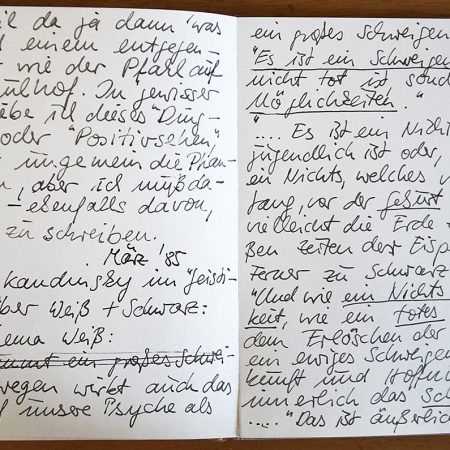 il da ja dann 'was
einem entgegen-
wie der Pfahl auf
ulhof. In gewisser
ebe ich dieses "Ding-
oder "Positivsehen",
ungemein die Phan-
n, aber ich muß da-
ebenfalls davon,
zu schreiben.
März '85
kandinsky im "Geisti-
über Weiß + Schwarz:
ema Weiß:
mmt ein großes Schwei-
wegen wirkt auch das
f unsere Psyche als
ein großes Schweigen
"Es ist ein Schweigen
nicht tot ist sond
Möglichkeiten."
".... Es ist ein Nicht
jugendlich ist oder,
ein Nichts, welches v
fang, vor der Geburt
vielleicht die Erde
ßen zeiten der Eisp
Ferner zu Schwarz
"Und wie ein Nichts
keit, wie ein totes
dem Erlöschen der
ein ewiges Schweigen
kunft und Hoffnu
innerlich das Sch
...." Das ist äußerlich